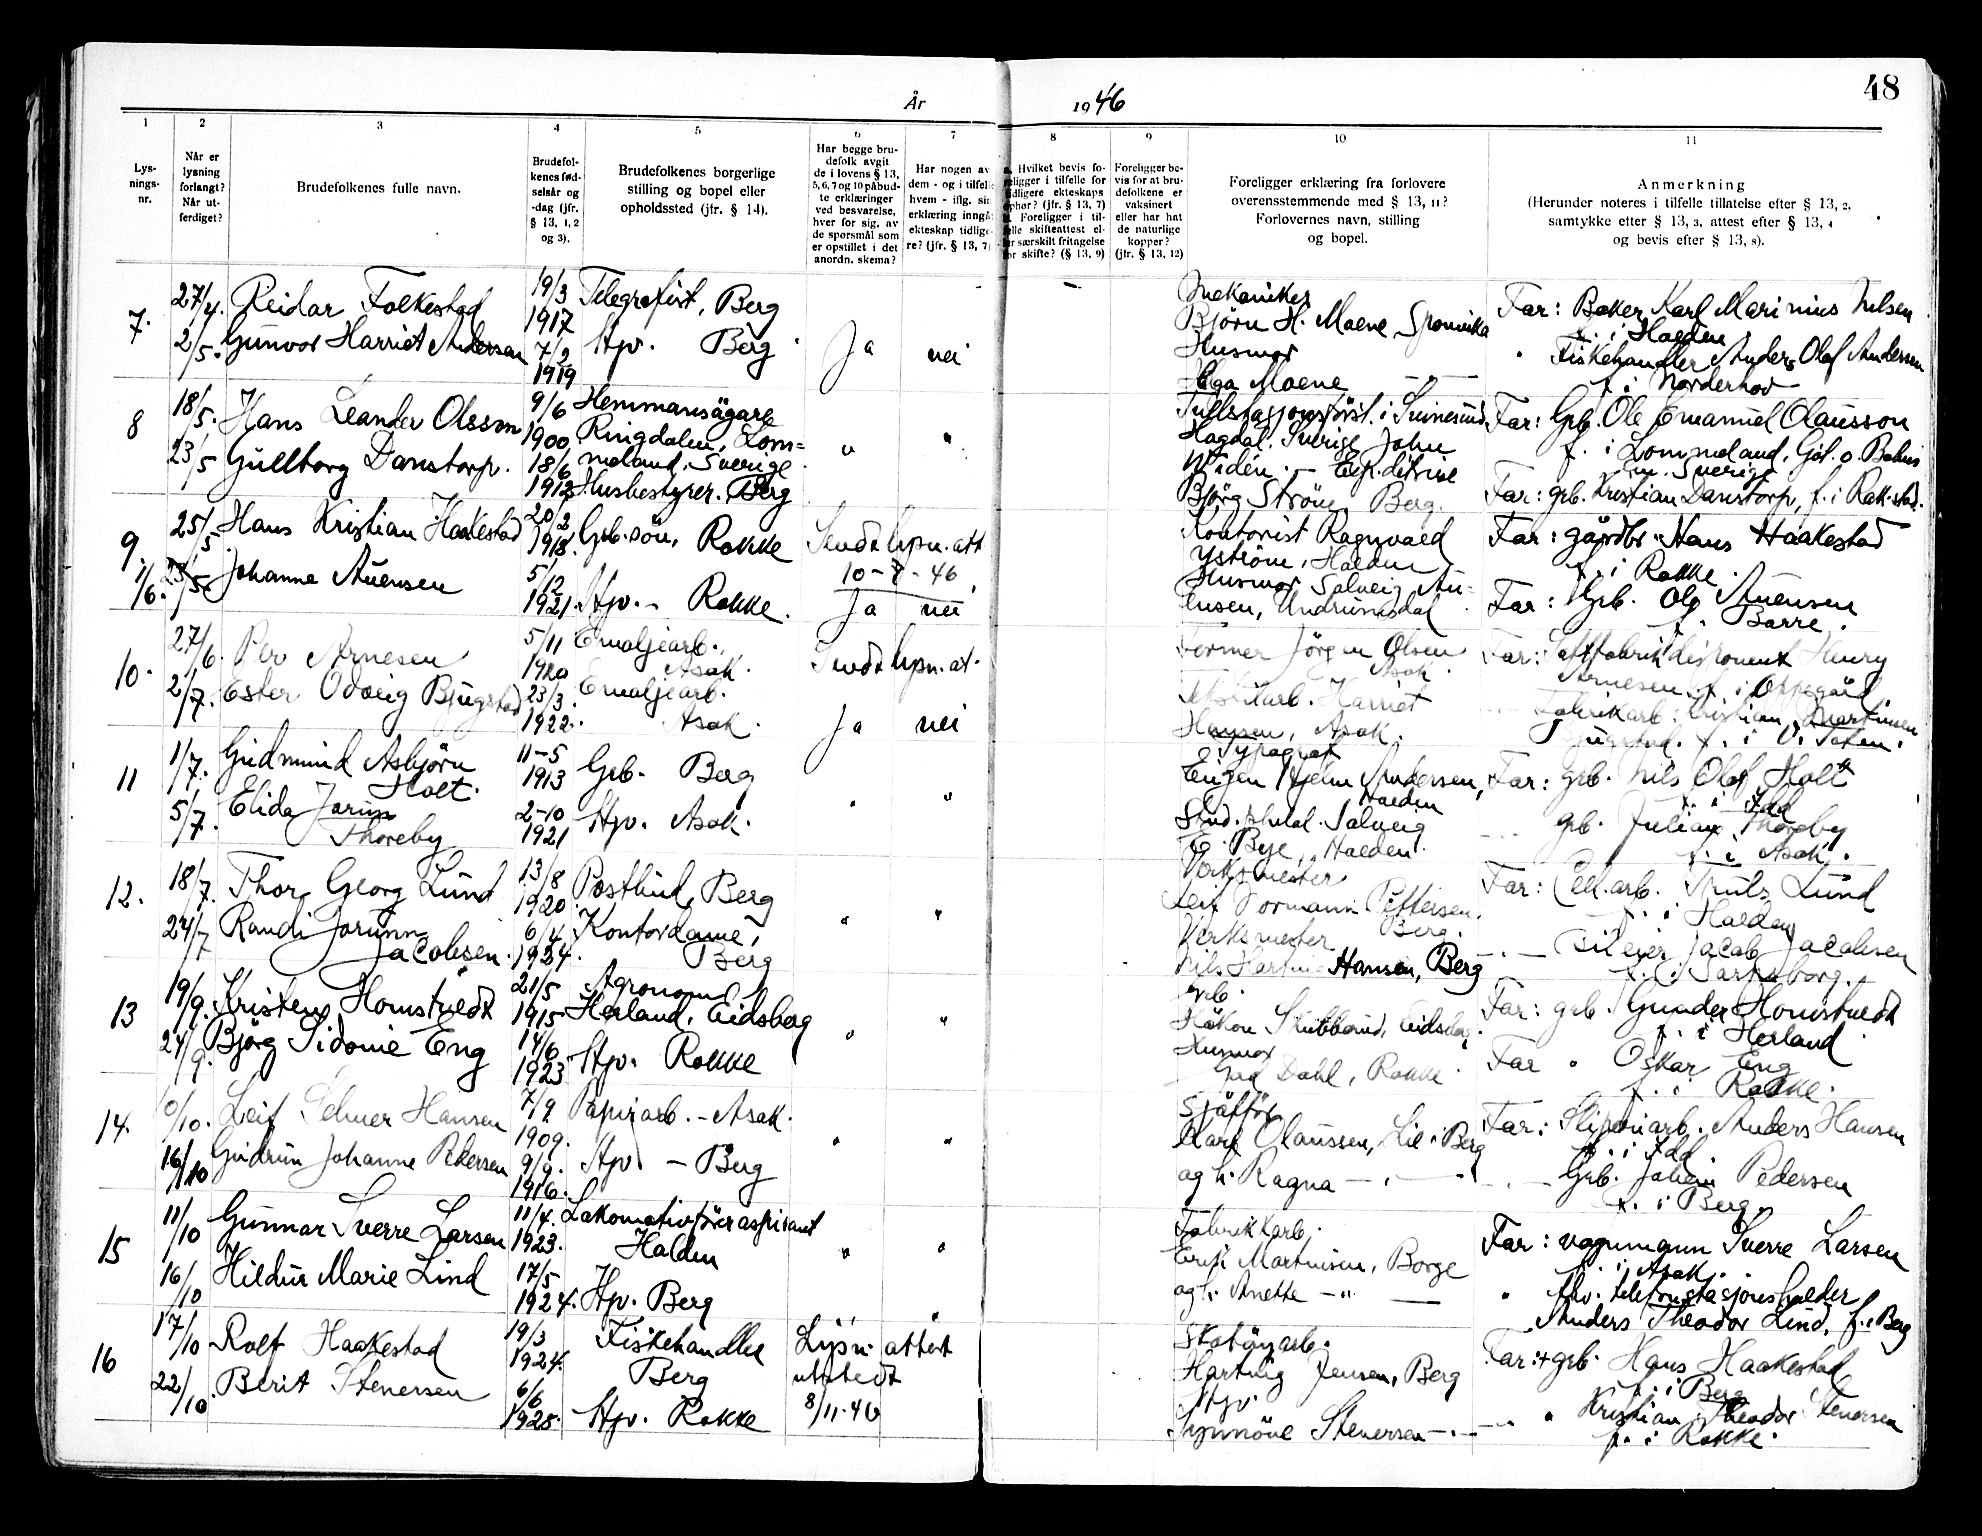 48
År 1946
1 2 3 4 5 6 7 8 9 10 11
Lys-
nings-
nr.
Når er
lysning
forlangt?
Når ut-
ferdiget?
Brudefolkenes fulle navn.
Brudefol-
kenes fød-
selsår og
-dag (jfr.
§ 13, 1, 2
og 3).
Brudefolkenes borgerlige
stilling og bopel eller
opholdssted (jfr. § 14).
Har begge bru-
defolk avgit
de i lovens § 13,
5, 6, 7 og 10 påbud-
te erklæringer
ved besvarelse,
hver for sig, av
de spørsmål som
er opstillet i det
anordn. skema?
Har nogen av
dem - og i tilfelle
hvem - iflg. sin
erklæring inngå
ekteskap tidlige-
re? (jfr. § 13, 7)
Hvilket bevis fo-
religger i tilfelle for
tidligere ekteskaps
ophør? (§ 13, 7)
Foreligger i til-
felle skifteattest el-
ler særskilt fritagelse
for skifte? (§ 13, 9)
Foreligger be-
vis for at bru-
defolkene er
vaksinert
eller har hat
de naturlige
kopper?
(jfr. § 13, 12)
Foreligger erklæring fra forlovere
overensstemmende med § 13, 11?
Forlovernes navn, stilling
og bopel.
Anmerkning
(Herunder noteres i tilfelle tillatelse efter § 13, 2,
samtykke efter § 13, 3, attest efter § 13, 4
og bevis efter § 13, 8).
7.
27/4.
2/5.
Reidar Folkestad
Gunvor Harriet Andersen
19/3
1917
7/2
1919
Telegrafist, Berg
Hpv. Berg
Ja nei
Mekaniker
Björn H. Moene, Sponvika
Husmor
Helga Moene
Far: Baker Karl Marinius Nilsen
f. i Halden
" Fiskehandler Anders Olaf Andersen
f. i Norderhov
8
18/5.
23/5
Hans Leander Olsson
Gullborg Danstorp.
9/6
1900
18/6
1912
Hemmansägare
Ringdalen, Lom=
meland, Sverige
Husbestyrer. Berg
" "
Tullstasjonsförest. i Svinesund
Hogdal. Sverige John
Widén. - Expeditrise
Björg Ström, Berg.
Far: Grb. Ole Emanuel Olausson
f. i Lommeland, Göt. o. Bohus
Sverige
Far: grb. Kristian Danstorp, f. i Rakkestad.
9.
25/5
1/6.
Hans Kristian Haakestad
Johanne Auensen
20/2
1918.
5/12
1921.
Grb.sön, Rokke
Hpv. - Rokke.
Sendt lysn. att
10 - 7 - 46
Ja nei
Kontorist Ragnvald
Yström, Halden
Husmor Solveig Au-
ensen, Undrumsdal
Far: gårdbr. Hans Haakestad
f. i Rokke.
Far: Grb. Ole Auensen
f. Borre.
10.
27/6.
2/7.
Per Arnesen
Ester Odveig Bjugstad
5/11
1920
23/3.
1922.
Emaljearb.
Asak.
Emaljearb.
Asak.
Sendt lysn. at.
Ja nei
Former Jörgen Olsen
Asak.
Tekstilarb. Harriet
Hansen, Asak.
Far: Saftfabrikkdisponent Henry
Arnesen f. i Oppegård
Fabrikarb. Kristian Martinsen
Bjugstad. f. i V. Toten.
11
1/7.
5/7.
Gudmund Asbjörn
Holt.
Elida Jorun
Thoreby
11-5
1913
2-10
1921
Grb. Berg
Hpv. Asak.
" "
Typograf
Eugen Hjelm Andersen,
Halden
Stud. philol. Solveig
E. Bye, Halden.
Far: grb. Nils Olaf Holt
f. i Idd
grb. Julian Thoreby
f. i Asak.
12.
18/7.
24/7
Thor Georg Lund
Randi Jorunn
Jacobsen.
13/8
1920
6/4
1924.
Postbud, Berg
Kontordame,
Berg
" "
Verksmester
Leif Normann Pettersen.
Berg.
Verksmester
Nils Hartvig Hansen, Berg
Far: Cell.arb. Truls Lund
f. i Halden
Bileier Jacob Jacobsen
f. i Sarpsborg.
13
19/9.
24/9.
Kristen Homstvedt
Björg Sidonie Eng
21/5
1915
14/6
1923
Agronom
Herland, Eidsberg
Hpv. Rokke
" "
grb.
Håkon Stubberud, Eidsberg
Husmor
Dahl, Rokke.
Far: grb. Gunder Homstvedt
f. i Herland
Far " Oskar Eng
f. i Rokke.
14.
/10.
16/10
Leif Selmer Hansen
Gudrun Johanne Pedersen
7/9
1909.
9/9.
1916.
Papirarb. - Asak.
Hpv - Berg
" "
Sjåfför
Karl Olaussen, Lie i Berg
og h. Ragna
Far: Sliperiarb. Anders Hansen
f. i Idd
Grb. Johan Pedersen
f. i Berg.
15
11/10
16/10
Gunnar Sverre Larsen
Hildur Marie Lind
11/4.
1923.
17/5
1924.
Lokomotivföreraspirant
Halden
Hpv. Berg
" "
Fabrikkarb.
Erik Martinsen, Borge
og h. Anette - " -
Far: vognmann Sverre Larsen
f. i Asak.
" telefonstasjonsholder
Anders Theodor Lind, f. i Berg
16
17/10
22/10.
Rolf Haakestad
Berit Stenersen
19/3
1924.
6/6
1928.
Fiskehandler
Berg
Hpv. Rokke
Lysn. attest
utstedt
8/11.46
Skotöyarb.
Hartvig Jensen, Berg
Hpv.
Synnöve Stenersen
Far: + grb. Hans Haakestad
f. i Berg
" Kristian Theodor Stenersen
f. i Rokke.